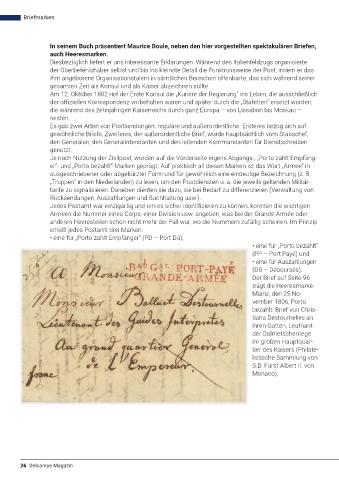 Briefmarken
In seinem Buch präsentiert Maurice Boule, neben den hier vorgestellten spektakulären Briefen,
auch Heeresmarken.
Diesbezüglich liefert er uns interessante Erklärungen: Während des Italienfeldzugs organisierte
der Oberbefehlshaber selbst und bis ins kleinste Detail die Funktionsweise der Post, indem er das
ihm angeborene Organisationstalent in sämtlichen Bereichen offenbarte, das sich während seiner
gesamten Zeit als Konsul und als Kaiser abzeichnen sollte.
Am 12. Oktober 1802 rief der Erste Konsul die „Kuriere der Regierung" ins Leben, die ausschließlich
der offiziellen Korrespondenz vorbehalten waren und später durch die „Stafetten" ersetzt wurden,
die während des zehnjährigen Kaiserreichs durch ganz Europa – von Lissabon bis Moskau –
reisten.
Es gab zwei Arten von Postsendungen: reguläre und außerordentliche. Ersteres bezog sich auf
gewöhnliche Briefe, Zweiteres, der außerordentliche Brief, wurde hauptsächlich vom Stabschef,
den Generälen, den Generalintendanten und den leitenden Kommandanten für Dienstschreiben
genutzt.
Je nach Nutzung der Zivilpost, wurden auf die Vorderseite eigens Abgangs-, „Porto zahlt Empfäng-
er"- und „Porto bezahlt"-Marken geprägt. Auf praktisch all diesen Marken ist das Wort „Armee" in
ausgeschriebener oder abgekürzter Form und für gewöhnlich eine eindeutige Bezeichnung (z. B.
„Truppen" in den Niederlanden) zu lesen, um den Postdiensten u. a. die jeweils geltenden Militär-
tarife zu signalisieren. Daneben dienten sie dazu, sie bei Bedarf zu differenzieren (Verwaltung von
Rücksendungen, Auszahlungen und Buchhaltung usw.).
Jedes Postamt war einzigartig und um es sicher identifizieren zu können, konnten die wichtigen
Armeen die Nummer eines Corps, einer Division usw. angeben, was bei der Grande Armée oder
anderen Heeresteilen schon nicht mehr der Fall war, wo die Nummern zufällig scheinen. Im Prinzip
erhielt jedes Postamt drei Marken:
• eine für „Porto zahlt Empfänger" (PD – Port Dû),
• eine für „Porto bezahlt"
(PP – Port Payé) und
• eine für Auszahlungen
(DB – Déboursés).
Der Brief auf Seite 96
trägt die Heeresmarke
Mainz, den 25 No-
vember 1806, Porto
bezahlt. Brief von Chris-
tiana Destournelles an
ihren Gatten, Leutnant
der Dolmetscherriege
im großen Hauptquar-
tier des Kaisers (Philate-
listische Sammlung von
S.D. Fürst Albert II. von
Monaco).
PORT-PAYÉ
GRANDE-ARMÉE
A Monsieur
Monsieur Balluet Destournelles
Lieutenant des Guides Interpretes
Au grand quartier General
de l'Empereur.
franc
26 Delcampe Magazin